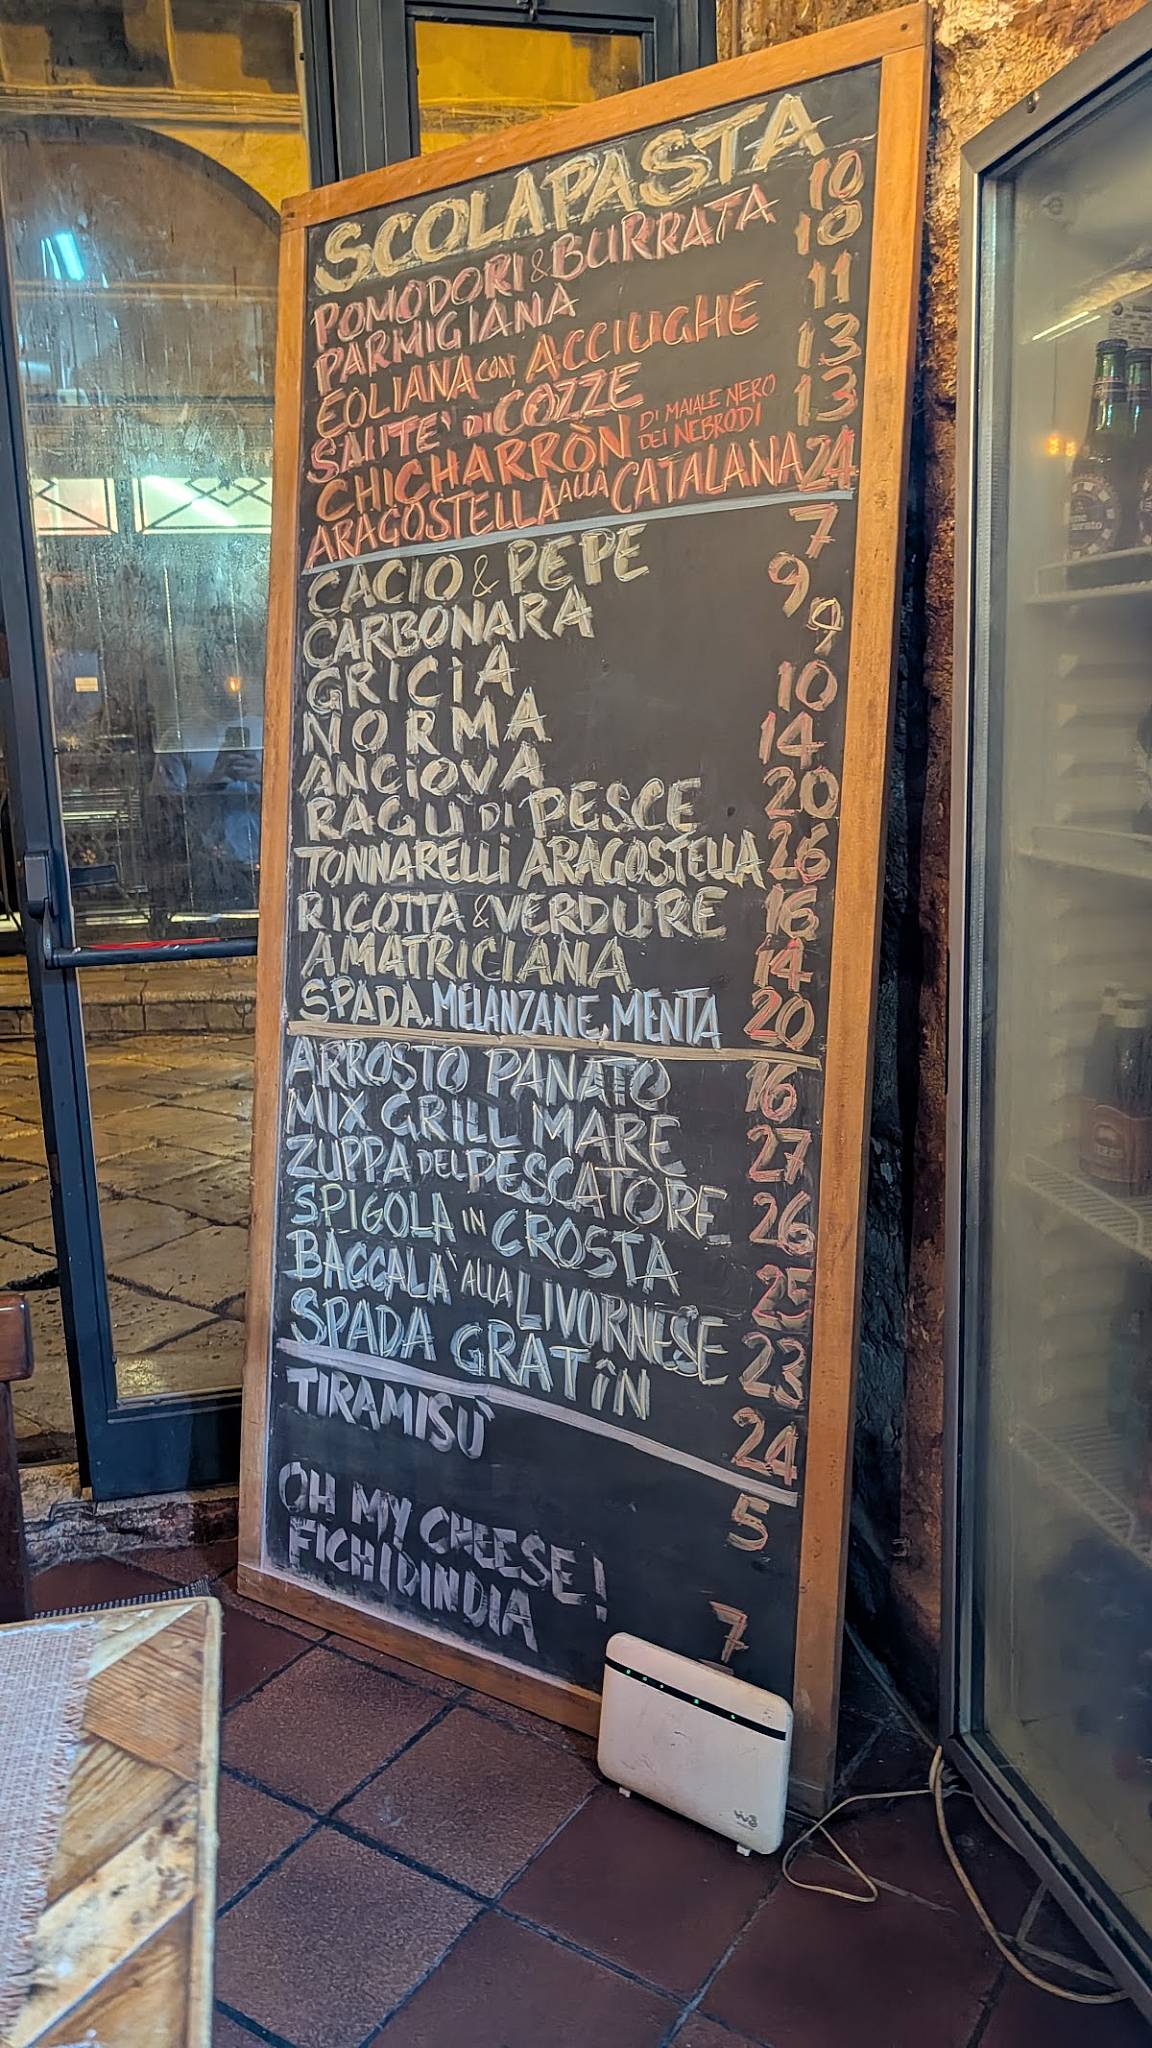 SCOLAPASTA
POMODORI & BURRATA 10
PARMIGIANA 10
EOLIANA CON ACCIUGHE 11
SAUTE' DI COZZE 13
CHICHARRÒN DI MAIALE NERO DEI NEBRODI 13
ARAGOSTELLA ALLA CATALANA 24
CACIO & PEPE 7
CARBONARA 9
GRICIA 9
NORMA 10
ANCIOVA 14
RAGU' DI PESCE 20
TONNARELLI ARAGOSTELLA 26
RICOTTA & VERDURE 16
AMATRICIANA 14
SPADA, MELANZANE, MENTA 20
ARROSTO PANATO 16
MIX GRILL MARE 27
ZUPPA DEL PESCATORE 26
SPIGOLA IN CROSTA 25
BACCALA' ALLA LIVORNESE 23
SPADA GRATÎN 24
TIRAMISÙ 5
OH MY CHEESE! 7
FICHIDINDIA
W3